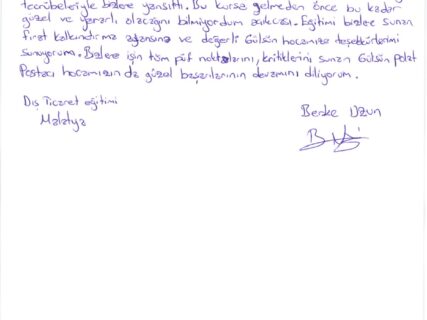 tecrübeleriyle bizlere yansıttı. Bu kursa gelmeden önce bu kadar
güzel ve yararlı olacağını bilmiyordum açıkcası. Eğitimi bizlere sunan
fırat kalkındırma ajansına ve değerli Gülsün hocamıza teşekkürlerimi
sunuyorum. Bizlere işin tüm püf noktalarını, kritiklerini sunan Gülsün polat
Postacı hocamızın da güzel başarılarının devamını diliyorum.
Dış Ticaret eğitimi
Malatya
Berke Uzun